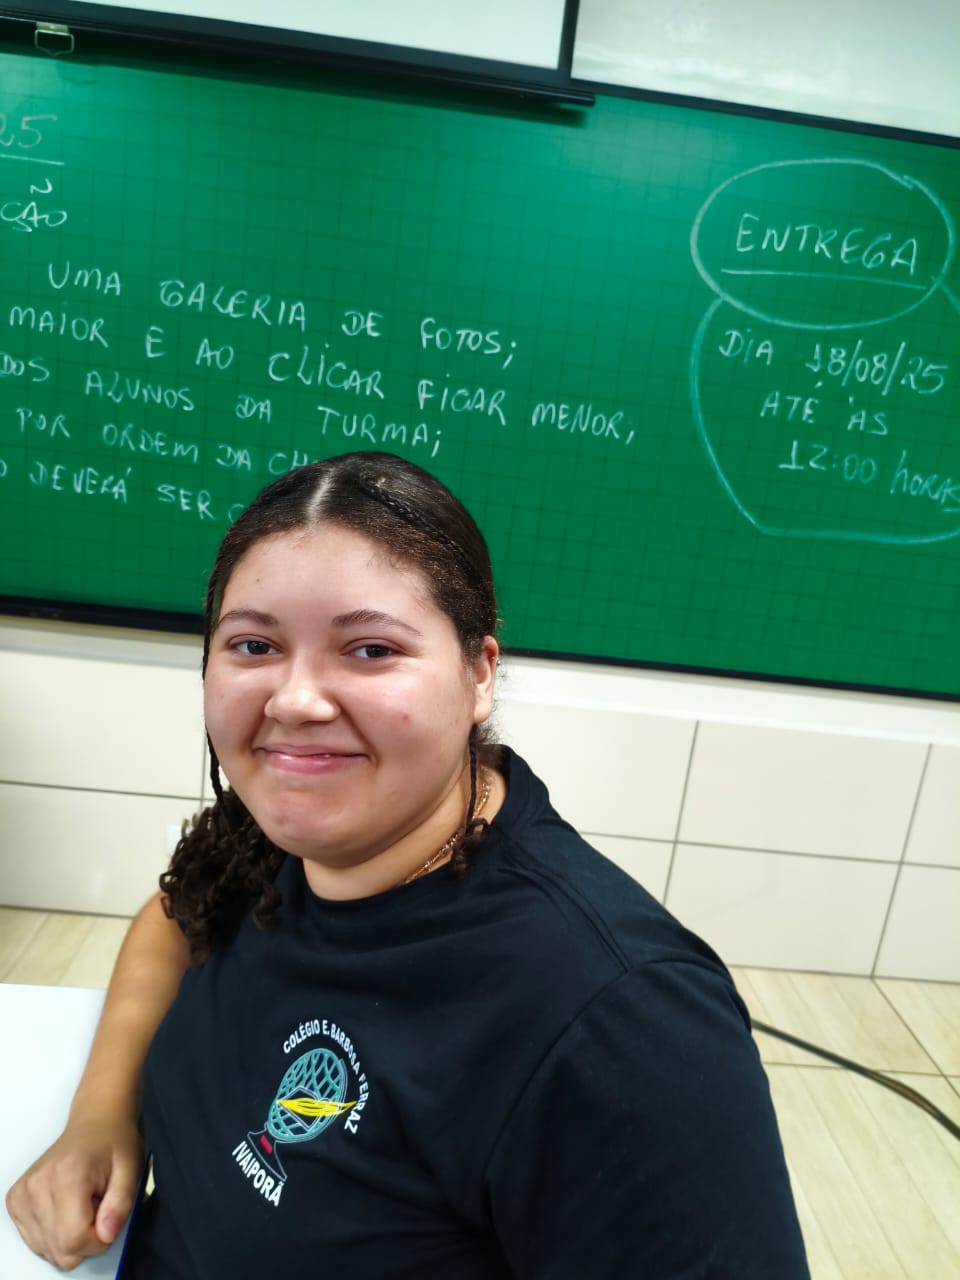 25
ÇÃO
UMA GALERIA DE FOTOS;
MAIOR E AO CLICAR FICAR MENOR,
DOS ALUNOS DA TURMA;
POR ORDEM DA CH
O DEVERÁ SER
ENTREGA
DIA 18/08/25
ATÉ ÀS
12:00 horas
COLÉGIO E. BARBOSA FERRAZ
IVAIPORÃ